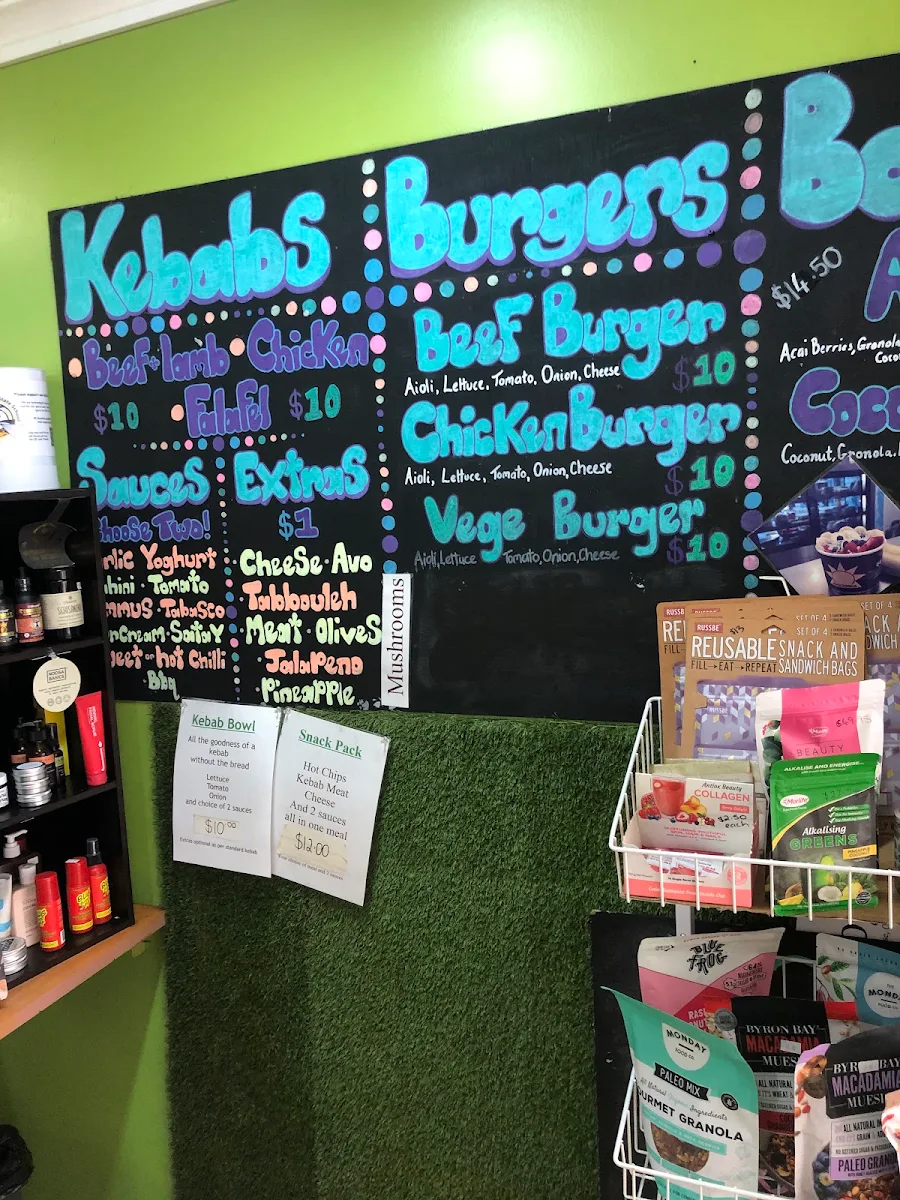 Kebabs
Beef + lamb Chicken
$10 Falafel $10
Sauces
Choose Two!
rlic Yoghurt
hini · Tomato
mmus Tabasco
r Cream · Satay
eet or Hot Chilli
Bbq
Extras
$1
Cheese · Avo
Tabbouleh
Meat · Olives
Jalapeno
Pineapple
Mushrooms
Burgers
Beef Burger
Aioli, Lettuce, Tomato, Onion, Cheese
$10
Chicken Burger
Aioli, Lettuce, Tomato, Onion, Cheese
$10
Vege Burger
Aioli, Lettuce Tomato, Onion, Cheese
$10
Bo
$14.50
A
Acai Berries, Granola
Coco
Coco
Coconut, Granola,
Kebab Bowl
All the goodness of a
kebab
without the bread
Lettuce
Tomato
Onion
and choice of 2 sauces
$10.00
Extras optional as per standard kebab
Snack Pack
Hot Chips
Kebab Meat
Cheese
And 2 sauces
all in one meal
$12.00
Your choice of meat and 2 sauces
NOOSA
BASICS
RUSSBE
REUSABLE SNACK AND
SANDWICH BAGS
SET OF 4
FILL→EAT→REPEAT
$69.
BEAUTY
Antiox Beauty
COLLAGEN
$2.50
each
ALKALISE AND ENERGISE
Morlife
Alkalising
GREENS
PINEAPPLE
COCONUT
BLUE
FROG
MONDAY
FOOD Co.
PALEO MIX
All Natural Ingredients
OURMET GRANOLA
THE
MOND
FOOD CO.
BYRON BAY
MACADAMIA
MUES
ALL NATURAL
BYRON BAY
MACADAMIA
MUESLI
ALL NATURAL
PALEO GRAN